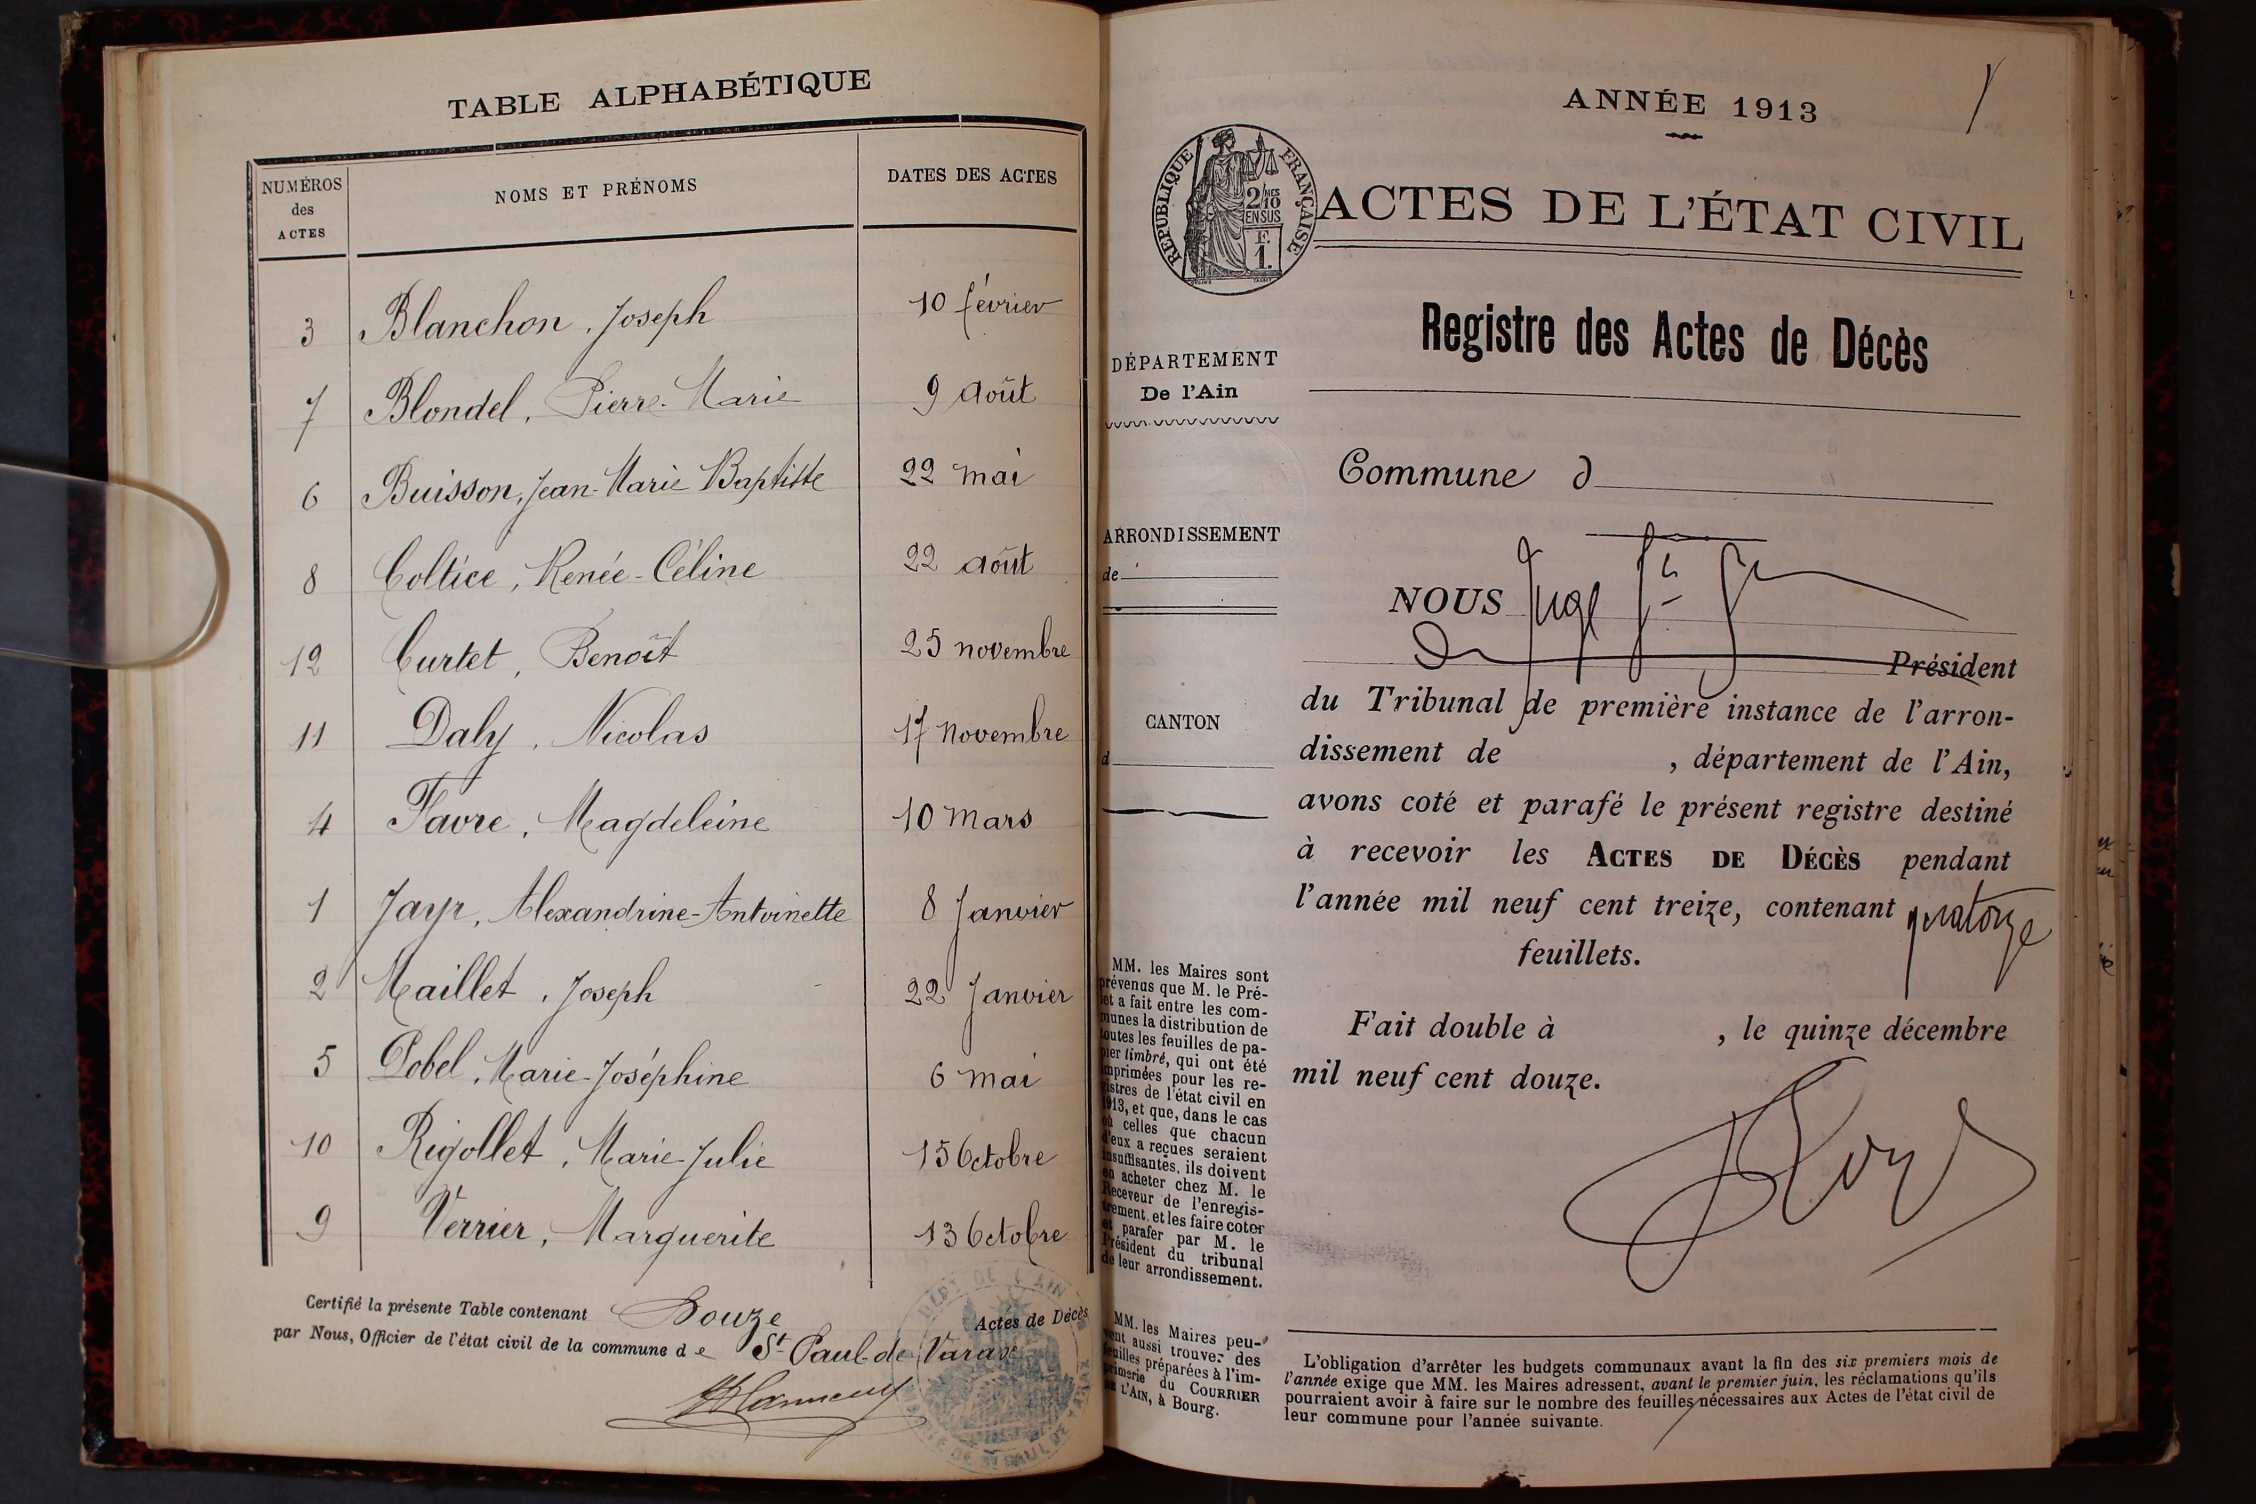 TABLE ALPHABÉTIQUE
NUMÉROS des ACTES NOMS ET PRÉNOMS DATES DES ACTES
3 Blanchon, Joseph 10 février
7 Blondel, Pierre-Marie 9 août
6 Buisson, Jean-Marie Baptiste 22 mai
8 Coltice, Renée-Céline 22 août
12 Curtet, Benoît 25 novembre
11 Daly, Nicolas 17 novembre
4 Favre, Magdeleine 10 mars
1 Jayr, Alexandrine-Antoinette 8 Janvier
2 Maillet, Joseph 22 Janvier
5 Pobel, Marie-Joséphine 6 mai
10 Rigollet, Marie-Julie 15 Octobre
9 Verrier, Marguerite 13 Octobre
Certifié la présente Table contenant Douze Actes de Décès
par Nous, Officier de l'état civil de la commune de St-Paul-de-Varax
ANNÉE 1913
RÉPUBLIQUE FRANÇAISE
2/10MES
EN SUS
F.
1.
ACTES DE L'ÉTAT CIVIL
Registre des Actes de Décès
DÉPARTEMENT
De l'Ain
ARRONDISSEMENT
de
CANTON
d
MM. les Maires sont
prévenus que M. le Pré-
fet a fait entre les com-
munes la distribution de
toutes les feuilles de pa-
pier timbré, qui ont été
imprimées pour les re-
gistres de l'état civil en
1913, et que, dans le cas
où celles que chacun
d'eux a reçues seraient
insuffisantes, ils doivent
en acheter chez M. le
Receveur de l'enregis-
trement, et les faire coter
et parafer par M. le
Président du tribunal
de leur arrondissement.
MM. les Maires peu-
vent aussi trouver des
feuilles préparées à l'im-
primerie du COURRIER
DE L'AIN, à Bourg.
Commune d
NOUS Juge
Président
du Tribunal de première instance de l'arron-
dissement de , département de l'Ain,
avons coté et parafé le présent registre destiné
à recevoir les ACTES DE DÉCÈS pendant
l'année mil neuf cent treize, contenant quatorze
feuillets.
Fait double à , le quinze décembre
mil neuf cent douze.
L'obligation d'arrêter les budgets communaux avant la fin des six premiers mois de
l'année exige que MM. les Maires adressent, avant le premier juin, les réclamations qu'ils
pourraient avoir à faire sur le nombre des feuilles nécessaires aux Actes de l'état civil de
leur commune pour l'année suivante.